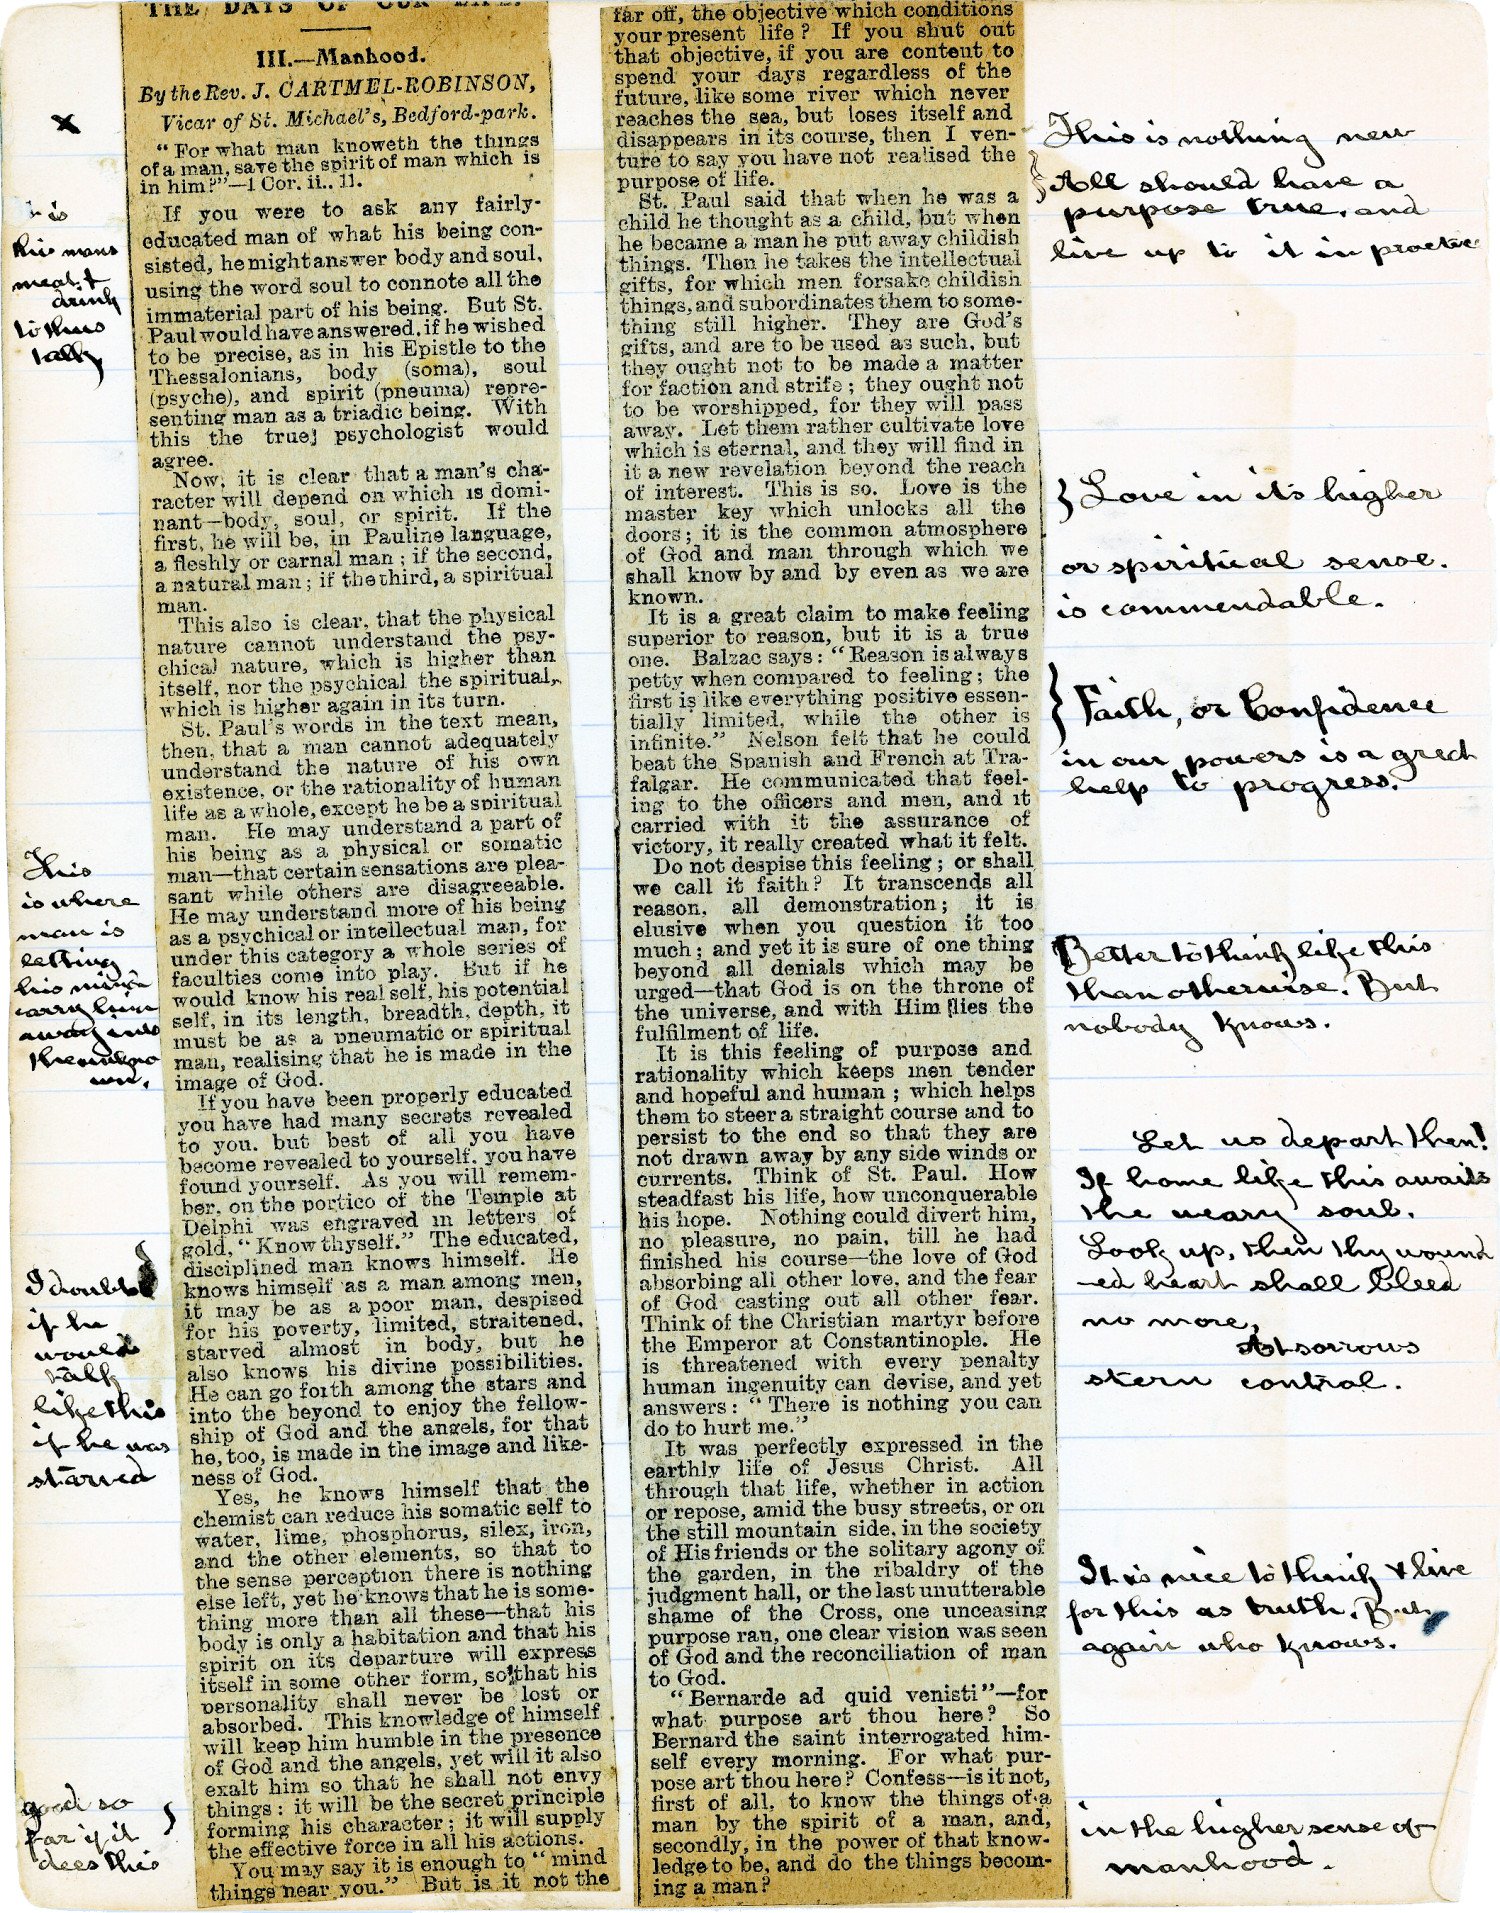 THE DAYS OF OUR LIFE.
III.—Manhood.
By the Rev. J. CARTMEL-ROBINSON,
Vicar of St. Michael's, Bedford-park.
"For what man knoweth the things
of a man, save the spirit of man which is
in him?"—1 Cor. ii.. 11.
If you were to ask any fairly-
educated man of what his being con-
sisted, he might answer body and soul,
using the word soul to connote all the
immaterial part of his being. But St.
Paul would have answered, if he wished
to be precise, as in his Epistle to the
Thessalonians, body (soma), soul
(psyche), and spirit (pneuma) repre-
senting man as a triadic being. With
this the true] psychologist would
agree.
Now, it is clear that a man's cha-
racter will depend on which is domi-
nant—body, soul, or spirit. If the
first, he will be, in Pauline language,
a fleshly or carnal man; if the second,
a natural man; if the third, a spiritual
man.
This also is clear, that the physical
nature cannot understand the psy-
chical nature, which is higher than
itself, nor the psychical the spiritual,
which is higher again in its turn.
St. Paul's words in the text mean,
then, that a man cannot adequately
understand the nature of his own
existence, or the rationality of human
life as a whole, except he be a spiritual
man. He may understand a part of
his being as a physical or somatic
man—that certain sensations are plea-
sant while others are disagreeable.
He may understand more of his being
as a psychical or intellectual man, for
under this category a whole series of
faculties come into play. But if he
would know his real self, his potential
self, in its length, breadth, depth, it
must be as a pneumatic or spiritual
man, realising that he is made in the
image of God.
If you have been properly educated
you have had many secrets revealed
to you, but best of all you have
become revealed to yourself, you have
found yourself. As you will remem-
ber, on the portico of the Temple at
Delphi was engraved in letters of
gold, "Know thyself." The educated,
disciplined man knows himself. He
knows himself as a man among men,
it may be as a poor man, despised
for his poverty, limited, straitened,
starved almost in body, but he
also knows his divine possibilities.
He can go forth among the stars and
into the beyond to enjoy the fellow-
ship of God and the angels, for that
he, too, is made in the image and like-
ness of God.
Yes, he knows himself that the
chemist can reduce his somatic self to
water, lime, phosphorus, silex, iron,
and the other elements, so that to
the sense perception there is nothing
else left, yet he knows that he is some-
thing more than all these—that his
body is only a habitation and that his
spirit on its departure will express
itself in some other form, so that his
personality shall never be lost or
absorbed. This knowledge of himself
will keep him humble in the presence
of God and the angels, yet will it also
exalt him so that he shall not envy
things: it will be the secret principle
forming his character; it will supply
the effective force in all his actions.
You may say it is enough to "mind
things near you." But is it not the
far off, the objective which conditions
your present life? If you shut out
that objective, if you are content to
spend your days regardless of the
future, like some river which never
reaches the sea, but loses itself and
disappears in its course, then I ven-
ture to say you have not realised the
purpose of life.
St. Paul said that when he was a
child he thought as a child, but when
he became a man he put away childish
things. Then he takes the intellectual
gifts, for which men forsake childish
things, and subordinates them to some-
thing still higher. They are God's
gifts, and are to be used as such, but
they ought not to be made a matter
for faction and strife; they ought not
to be worshipped, for they will pass
away. Let them rather cultivate love
which is eternal, and they will find in
it a new revelation beyond the reach
of interest. This is so. Love is the
master key which unlocks all the
doors; it is the common atmosphere
of God and man through which we
shall know by and by even as we are
known.
It is a great claim to make feeling
superior to reason, but it is a true
one. Balzac says: "Reason is always
petty when compared to feeling; the
first is like everything positive essen-
tially limited, while the other is
infinite." Nelson felt that he could
beat the Spanish and French at Tra-
falgar. He communicated that feel-
ing to the officers and men, and it
carried with it the assurance of
victory, it really created what it felt.
Do not despise this feeling; or shall
we call it faith? It transcends all
reason, all demonstration; it is
elusive when you question it too
much; and yet it is sure of one thing
beyond all denials which may be
urged—that God is on the throne of
the universe, and with Him lies the
fulfilment of life.
It is this feeling of purpose and
rationality which keeps men tender
and hopeful and human; which helps
them to steer a straight course and to
persist to the end so that they are
not drawn away by any side winds or
currents. Think of St. Paul. How
steadfast his life, how unconquerable
his hope. Nothing could divert him,
no pleasure, no pain, till he had
finished his course—the love of God
absorbing all other love, and the fear
of God casting out all other fear.
Think of the Christian martyr before
the Emperor at Constantinople. He
is threatened with every penalty
human ingenuity can devise, and yet
answers: "There is nothing you can
do to hurt me."
It was perfectly expressed in the
earthly life of Jesus Christ. All
through that life, whether in action
or repose, amid the busy streets, or on
the still mountain side, in the society
of His friends or the solitary agony of
the garden, in the ribaldry of the
judgment hall, or the last unutterable
shame of the Cross, one unceasing
purpose ran, one clear vision was seen
of God and the reconciliation of man
to God.
"Bernarde ad quid venisti"—for
what purpose art thou here? So
Bernard the saint interrogated him-
self every morning. For what pur-
pose art thou here? Confess—is it not,
first of all, to know the things of a
man by the spirit of a man, and,
secondly, in the power of that know-
ledge to be, and do the things becom-
ing a man?
x
is
this mans
meat &
drink
to thus
talk
This
is where
man is
letting
his mind
carry him
away into
the unkno
wn.
I doubt
if he
would
talk
like this
if he was
starved
good so
far if it
does this
This is nothing new
All should have a
purpose true. and
live up to it in practice
Love in its higher
or spiritual sense.
is commendable.
Faith, or Confidence
in our powers is a great
help to progress.
Better to think like this
than otherwise. But
nobody knows.
Let us depart then!
If home like this awaits
the weary soul.
Look up, then thy wound
-ed heart shall bleed
no more,
At sorrows
stern control.
It is nice to think & live
for this as truth. But
again who knows.
in the higher sense of
manhood.